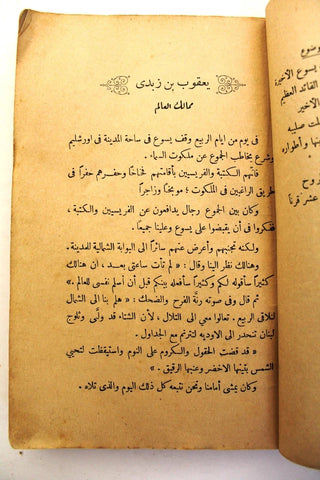 يعقوب بن زبدى
ممالك العالم
فى يوم من ايام الربيع وقف يسوع فى ساحة المدينة فى اورشليم
وشرع يخاطب الجموع عن ملكوت السماء.
فاتهم الكتبة والفريسيين بأقامتهم فخاخًا وحفرهم حفرًا فى
طريق الراغبين فى الملكوت؛ موبخًا وزاجرًا
وكان بين الجموع رجال يدافعون عن الفريسيين والكتبة،
ففكروا فى أن يقبضوا على يسوع وعلينا جميعًا.
ولكنه تجنبهم وأعرض عنهم سائرًا الى البوابة الشمالية للمدينة.
وهنالك نظر الينا وقال: « لم تأت ساعتى بعد، ان هنالك
كثيرًا سأقوله لكم وكثيرًا سأفعله بينكم قبل أن أسلم نفسى للعالم.»
ثم قال وفى صوته رنَّة الفرح والضحك: « هلم بنا الى الشمال
لنلاقى الربيع. تعالوا معى الى التلال، لأن الشتاء قد ولَّى وثلوج
لبنان تنحدر الى الاوديه لتترنم مع الجداول.
« قد قضت الحقول والكروم على النوم واستيقظت لتحيى
الشمس بتينها الاخضر وعنبها الرقيق.»
وكان يمشى أمامنا ونحن نتبعه كل ذلك اليوم والذى تلاه.
وضوع
يسوع الاخيرة
القائد العظيم
الاخير
لت صلبه
وأطواره
روح
عشر قرنا